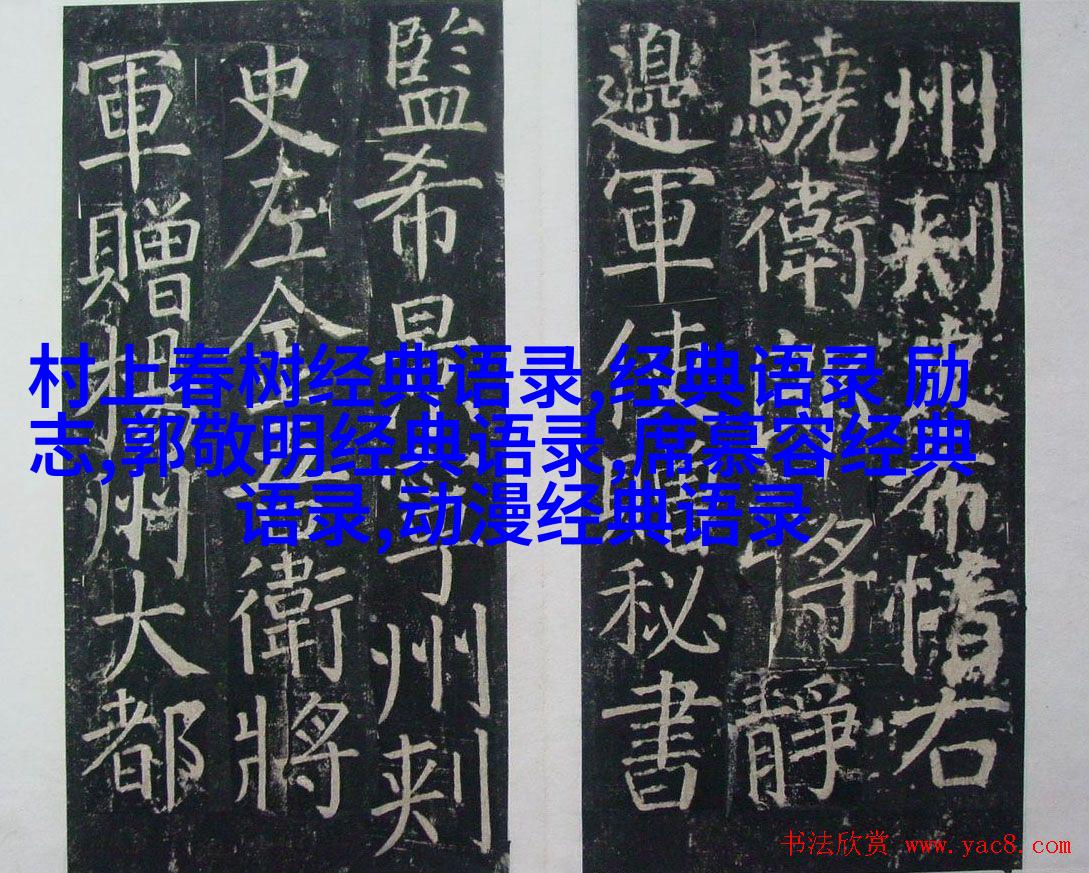 州刺史希右
驍衛將靜
邊軍使贈秘書
監希景州刺
史左金衛將
軍贈揚州大都
村上春树经典语录,经典语录 励
志,郭敬明经典语录,席慕容经典
语录,动漫经典语录
书法欣赏 www.yac8.com